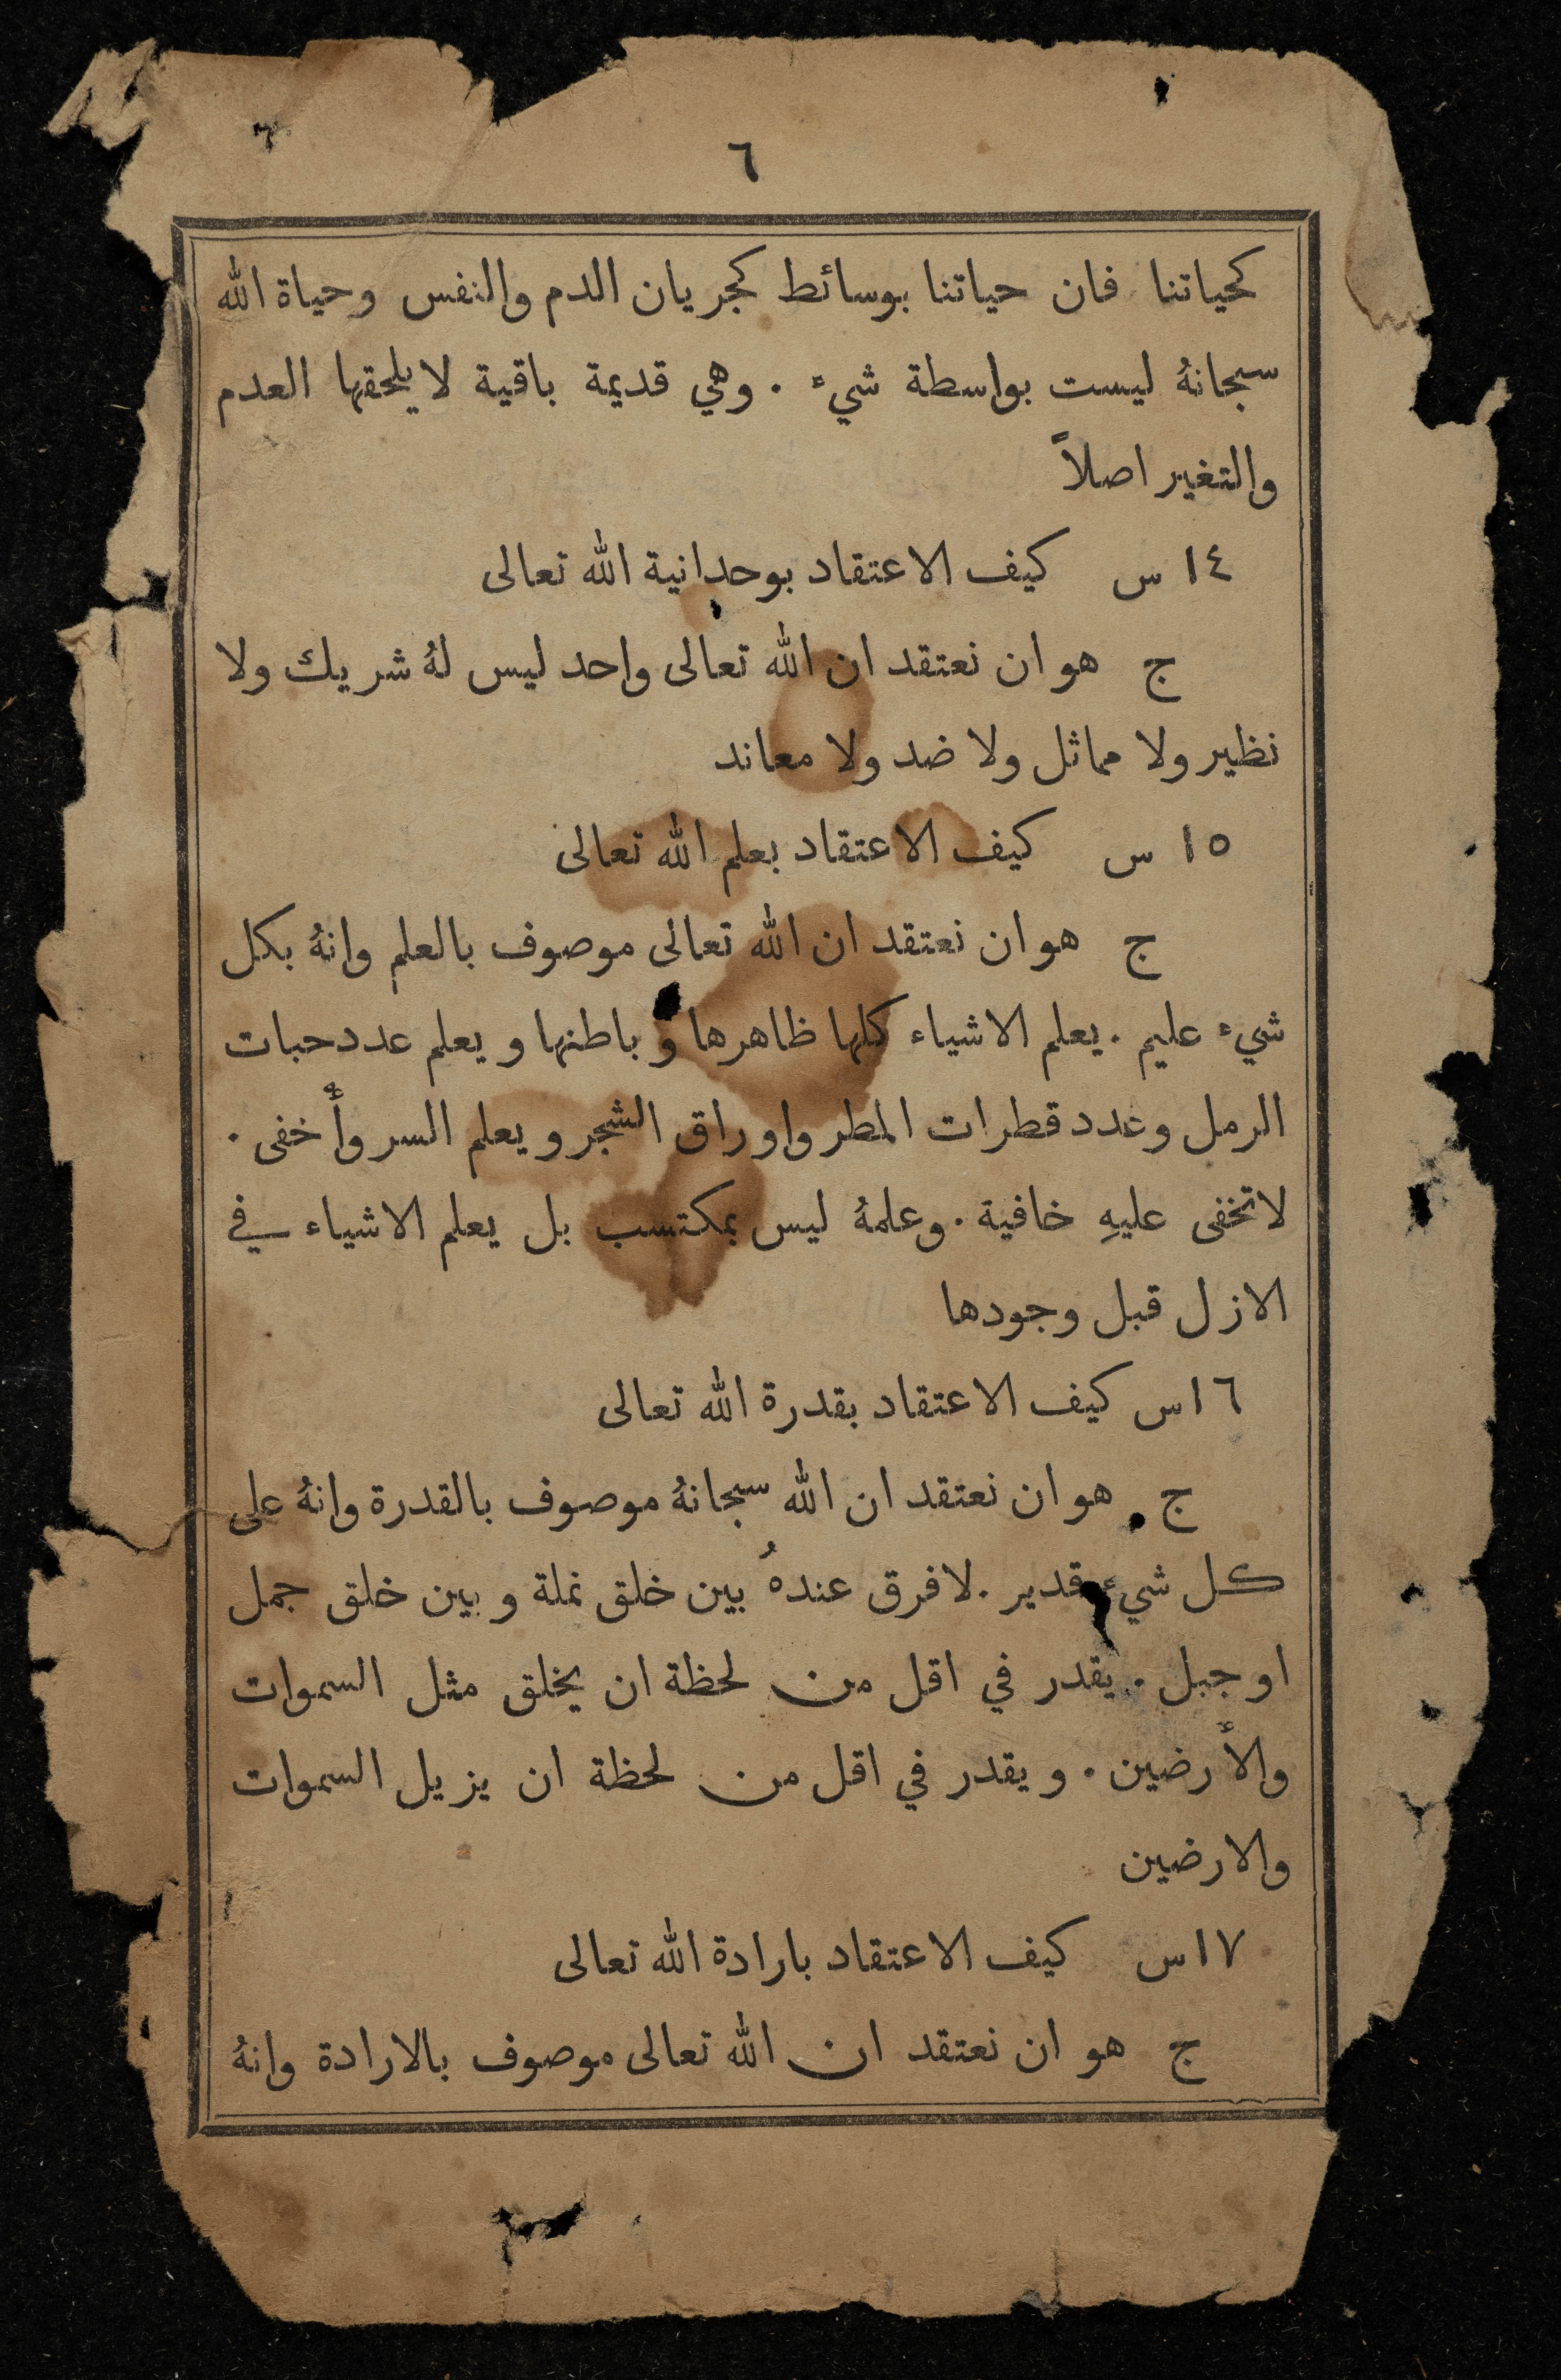 ٦
كحياتنا فان حياتنا بوسائط كجريان الدم والنفس وحياة الله
سبحانهُ ليست بواسطة شيء . وهي قديمة باقية لا يلحقها العدم
والتغير اصلاً
١٤ س كيف الاعتقاد بوحدانية الله تعالى
ج هو ان نعتقد ان الله تعالى واحد ليس لهُ شريك ولا
نظير ولا مماثل ولا ضد ولا معاند
١٥ س كيف الاعتقاد بعلم الله تعالى
ج هو ان نعتقد ان الله تعالى موصوف بالعلم وانهُ بكل
شيء عليم . يعلم الاشياء كلها ظاهرها وباطنها ويعلم عدد حبات
الرمل وعدد قطرات المطر واوراق الشجر ويعلم السر وأخفى .
لا تخفى عليهِ خافية . وعلمهُ ليس بمكتسب بل يعلم الاشياء في
الازل قبل وجودها
١٦ س كيف الاعتقاد بقدرة الله تعالى
ج هو ان نعتقد ان الله سبحانهُ موصوف بالقدرة وانهُ على
كل شيء قدير . لا فرق عندهُ بين خلق نملة وبين خلق جمل
او جبل . يقدر في اقل من لحظة ان يخلق مثل السموات
والأرضين . ويقدر في اقل من لحظة ان يزيل السموات
والارضين
١٧ س كيف الاعتقاد بارادة الله تعالى
ج هو ان نعتقد ان الله تعالى موصوف بالارادة وانهُ